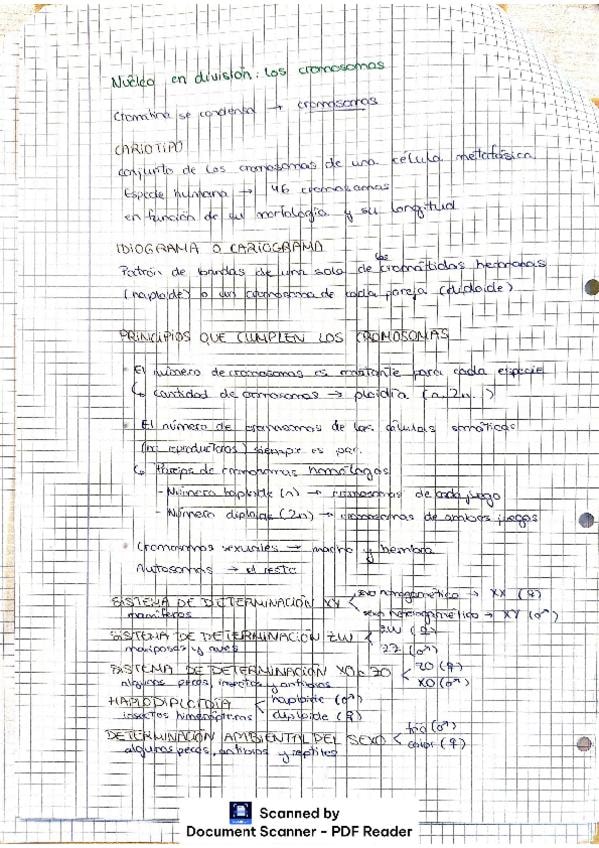 Núcleo en división: los cromosomas
Cromatina se condensa → cromosomas
CARIOTIPO
conjunto de los cromosomas de una célula metafásica
Especie humana → 46 cromosomas
en función de su morfología y su longitud
IDIOGRAMA O CARIOGRAMA
Patrón de bandas de una sola de las cromátidas hermanas
(haploide) o un cromosoma de cada pareja (diploide)
PRINCIPIOS QUE CUMPLEN LOS CROMOSOMAS
• El número de cromosomas es constante para cada especie
↳ cantidad de cromosomas → ploidía (n, 2n..)
• El número de cromosomas de las células somáticas
(no reproductoras) siempre es par.
↳ Parejas de cromosomas homólogos
- Número haploide (n) → cromosomas de cada juego
- Número diploide (2n) → cromosomas de ambos juegos
• Cromosomas sexuales → macho y hembra
Autosomas → el resto
SISTEMA DE DETERMINACIÓN XY < sexo homogamético → XX (♀)
mamíferos sexo heterogamético → XY (♂)
SISTEMA DE DETERMINACIÓN ZW < ZW (♀)
mariposas y aves ZZ (♂)
SISTEMA DE DETERMINACIÓN XO o ZO < ZO (♀)
algunos peces, insectos y anfibios XO (♂)
HAPLODIPLOIDIA < haploide (♂)
insectos himenópteros diploide (♀)
DETERMINACIÓN AMBIENTAL DEL SEXO < frío (♂)
algunos peces, anfibios y reptiles calor (♀)
Scanned by
Document Scanner - PDF Reader